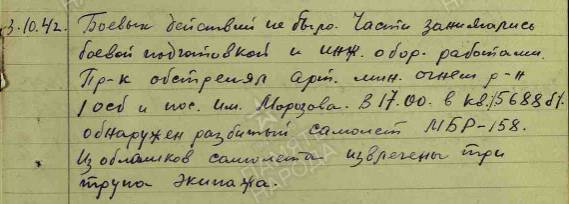 3.10.42. Боевых действий не было. Части занимались
боевой подготовкой и инж. обор. работами.
Пр-к обстрелял арт. мин. огнем р-н
1 осб и пос. им. Морозова. В 17.00. в кв.
обнаружен разбитый самолет МБР-158.
Из обломков самолета извлечены три
трупа экипажа.
ПАМЯТЬ
НАРОДА